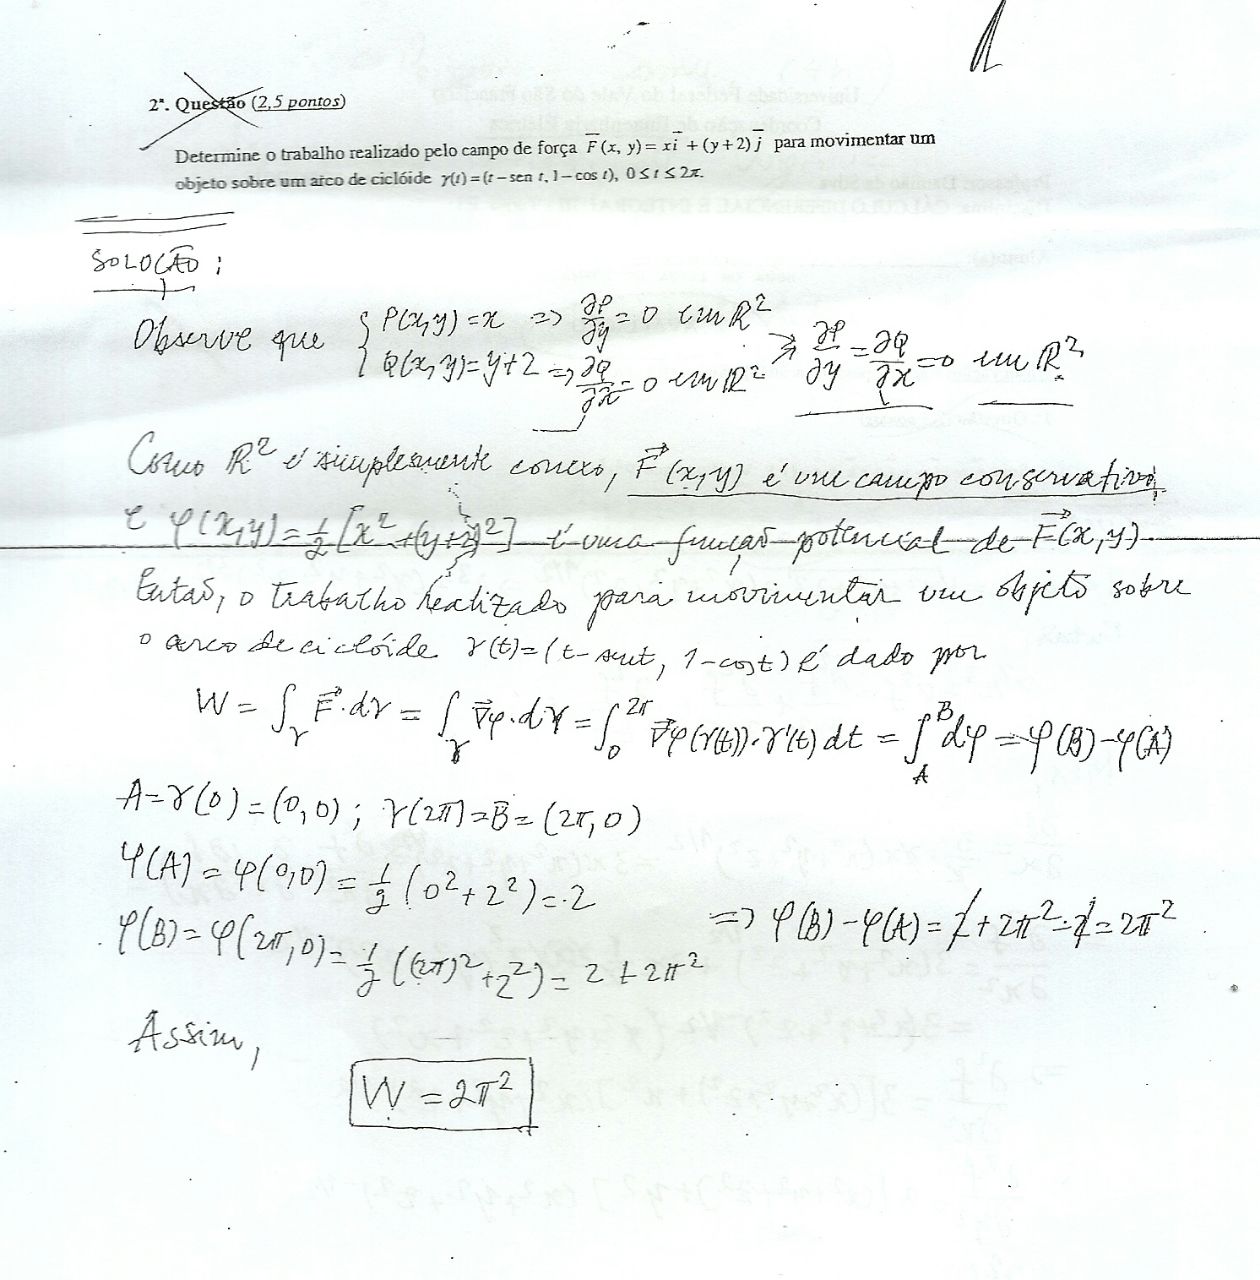 2ª. Questão (2,5 pontos)
Determine o trabalho realizado pelo campo de força F(x, y) = xi + (y + 2) j para movimentar um
objeto sobre um arco de ciclóide γ(t) = (t − sen t, 1 − cos t), 0 ≤ t ≤ 2π.
SOLUÇÃO:
Observe que { P(x,y) = x => ∂P/∂y = 0 em R²
Q(x,y) = y+2 => ∂Q/∂x = 0 em R² => ∂P/∂y = ∂Q/∂x = 0 em R².
Como R² é simplesmente conexo, F(x,y) é um campo conservativo,
e φ(x,y) = 1/2 [x² + (y+2)²] é uma função potencial de F(x,y).
Então, o trabalho realizado para movimentar um objeto sobre
o arco de ciclóide γ(t) = (t - sent, 1-cost) é dado por
W = ∫γ F·dγ = ∫γ ∇φ·dγ = ∫₀^2π ∇φ(γ(t))·γ'(t) dt = ∫_A^B dφ = φ(B) - φ(A)
A = γ(0) = (0,0) ; γ(2π) = B = (2π,0)
φ(A) = φ(0,0) = 1/2 (0² + 2²) = 2
φ(B) = φ(2π,0) = 1/2 ((2π)² + 2²) = 2 + 2π² => φ(B) - φ(A) = 2 + 2π² - 2 = 2π²
Assim,
W = 2π²